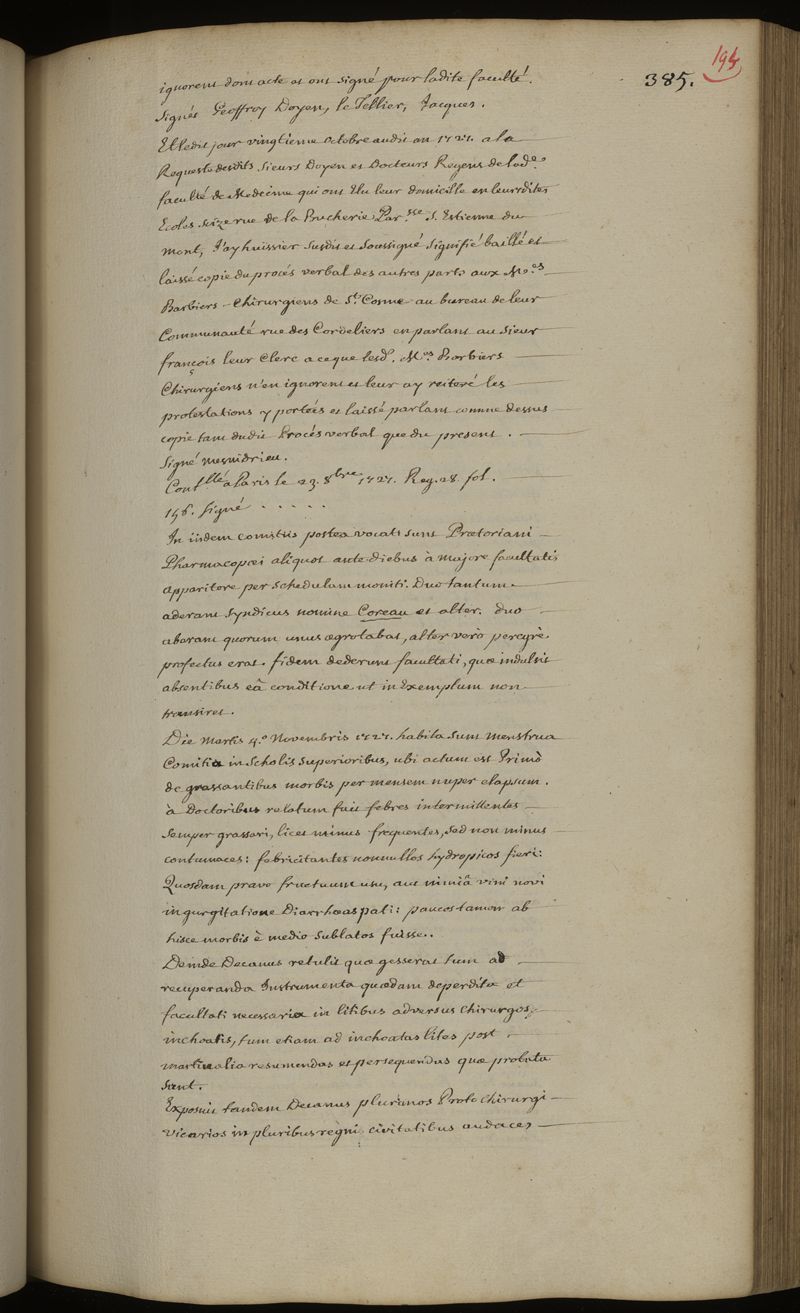 194
385.
ignorent dont acte et ont signé pour ladite faculté.
Signés Geoffroy Doyen, le Tellier, Jacques.
Et ledit jour vingtieme octobre audit an 1727. a la
Requeste desdits Sieurs Doyen et Docteurs Regens de lad.e
faculté de Medecine qui ont Elu leur domicille en leursdites
Ecoles size rue de la Bucherie Par.sse S. Estienne du
mont, J'ay huissier susdit et soussigné signifié baillé et
laissé copie du procés verbal des autres parts aux M.es
Barbiers - Chirurgiens de S.t Cosme au bureau de leur
Communauté rue des Cordeliers en parlant au Sieur
françois leur Clerc a ce que lesd. M.es Barbiers
Chirurgiens n'en ignorent et leur ay reiteré les
protestations y portées et laissé parlant comme dessus
copie tant dudit Procés verbal que du present.
Signé
Cont.llé a Paris le 23. 8bre 1727. Reg. 28. fol.
146. Signé . . . . .
In iisdem comitiis postea vocati sunt Prætoriani
Pharmacopœi aliquot ante diebus à majore facultatis
apparitore per schedulam moniti. Duo tantum
aderant Syndicus nomine Coreau et alter. duo
aberant quorum unus ægrotabat, alter verò peregrè
profectus erat. fidem dederunt facultati, quæ indulsit
absentibus eâ conditione ut in Exemplum non
transiret.
Die Martis 4.o Novembris 1727. habita sunt menstrua
Comitia in Scholis superioribus, ubi actum est Primò
de grassantibus morbis per mensem nuper elapsum.
à Doctoribus relatum fuit febres intermittentes
semper grassari, licet minus frequentes, sed non minus
contumaces: febricitantes nonnullos hydropicos fieri:
Quosdam pravo fructuum usu, aut nimiâ vini novi
ingurgitatione Diarrhœas pati: paucos tamen ab
hisce morbis è medio sublatos fuisse.
Deinde Decanus retulit quæ gesserat tum ad
recuperanda Instrumenta quædam deperdita et
facultati necessaria in litibus adversus Chirurgos
inchoatis, tum etiam ad inchoatas lites post
martinalia resumendas et persequendas quæ probata
sunt.
Exposuit tandem Decanus plurimos Proto Chirurgi
Vicarios in pluribus regni civitatibus audaces